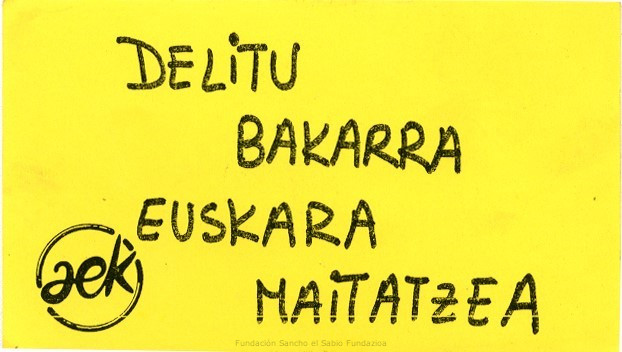 DELiTU
BAKARRA
EUSKARA
MAiTATZEA
aek
Fundación Sancho el Sabio Fundazioa